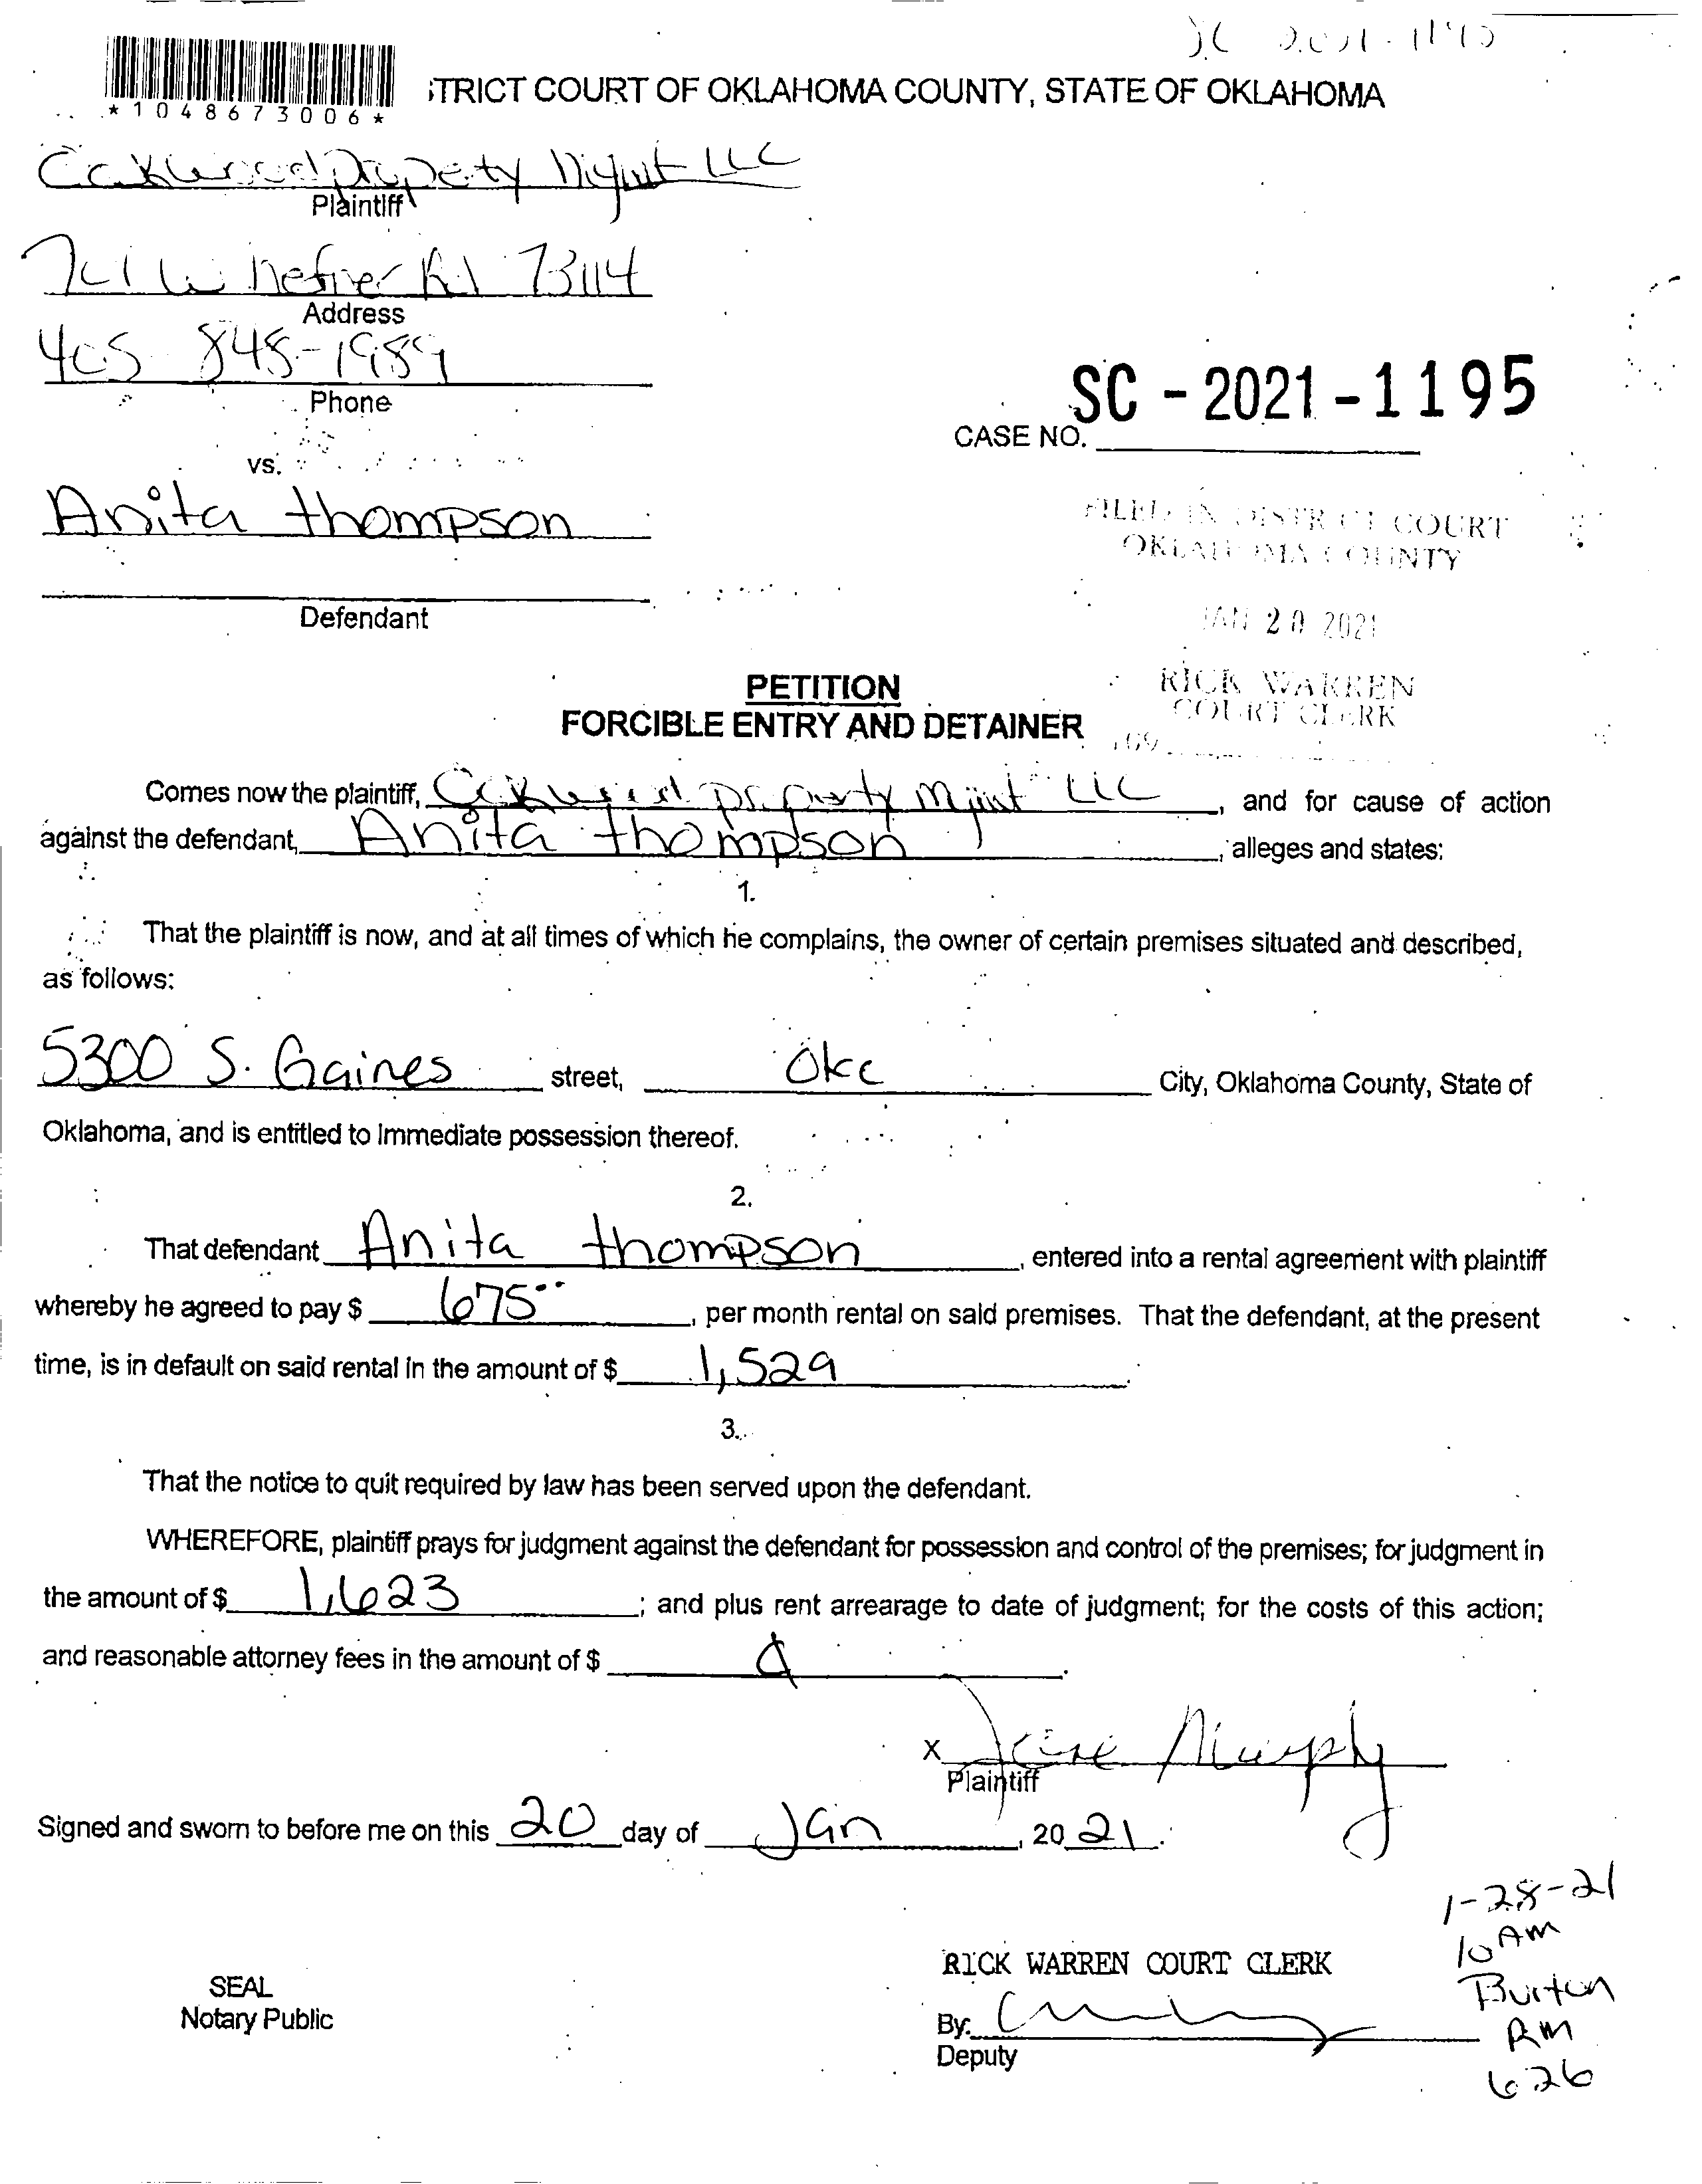 SC 2021-1195
*1048673006*
STRICT COURT OF OKLAHOMA COUNTY, STATE OF OKLAHOMA
Oakwood Property Mgmt LLC
Plaintiff
701 W Hefner Rd 73114
Address
405 848-1989
Phone
SC - 2021 - 1195
CASE NO.
vs.
Anita thompson
FILED IN DISTRICT COURT
OKLAHOMA COUNTY
Defendant
JAN 20 2021
RICK WARREN
COURT CLERK
109
PETITION
FORCIBLE ENTRY AND DETAINER
Comes now the plaintiff, Oakwood property Mgmt LLC, and for cause of action
against the defendant, Anita thompson, alleges and states:
1.
That the plaintiff is now, and at all times of which he complains, the owner of certain premises situated and described,
as follows:
5300 S. Gaines street, Okc City, Oklahoma County, State of
Oklahoma, and is entitled to immediate possession thereof.
2.
That defendant Anita thompson, entered into a rental agreement with plaintiff
whereby he agreed to pay $ 675.., per month rental on said premises. That the defendant, at the present
time, is in default on said rental in the amount of $ 1,529.
3.
That the notice to quit required by law has been served upon the defendant.
WHEREFORE, plaintiff prays for judgment against the defendant for possession and control of the premises; for judgment in
the amount of $ 1,623; and plus rent arrearage to date of judgment; for the costs of this action;
and reasonable attorney fees in the amount of $
X Murphy
Plaintiff
Signed and sworn to before me on this 20 day of Jan, 20 21.
1-28-21
10 AM
Burton
RM
626
RICK WARREN COURT CLERK
SEAL
Notary Public
By:
Deputy